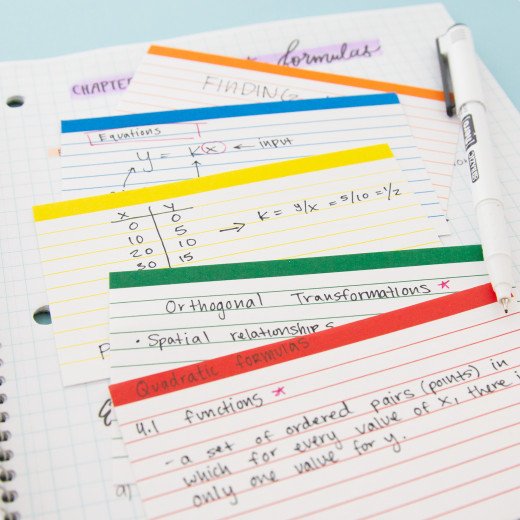 CHAPTER formulas
FINDING
Equations
y = kx ← input
x y
0 0
10 5 → k = y/x = 5/10 = 1/2
20 10
30 15
Orthogonal Transformations *
• Spatial relationships
Quadratic formulas
4.1 functions *
- a set of ordered pairs (points) in
which for every value of x, there i
only one value for y.
a)